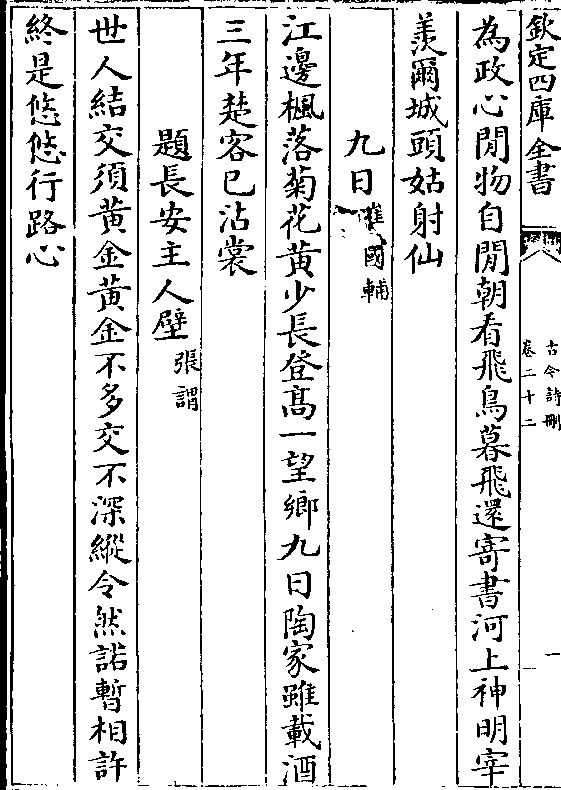 欽定四庫全書
古今詩刪
卷二十二
一
為政心閒物自閒朝看飛鳥暮飛還寄書河上神明宰
羨爾城頭姑射仙
九日 崔國輔
江邊楓落菊花黃少長登髙一望鄉九日陶家雖載酒
三年楚客已沾裳
題長安主人壁 張謂
世人結交須黃金黃金不多交不深縱令然諾暫相許
終是悠悠行路心